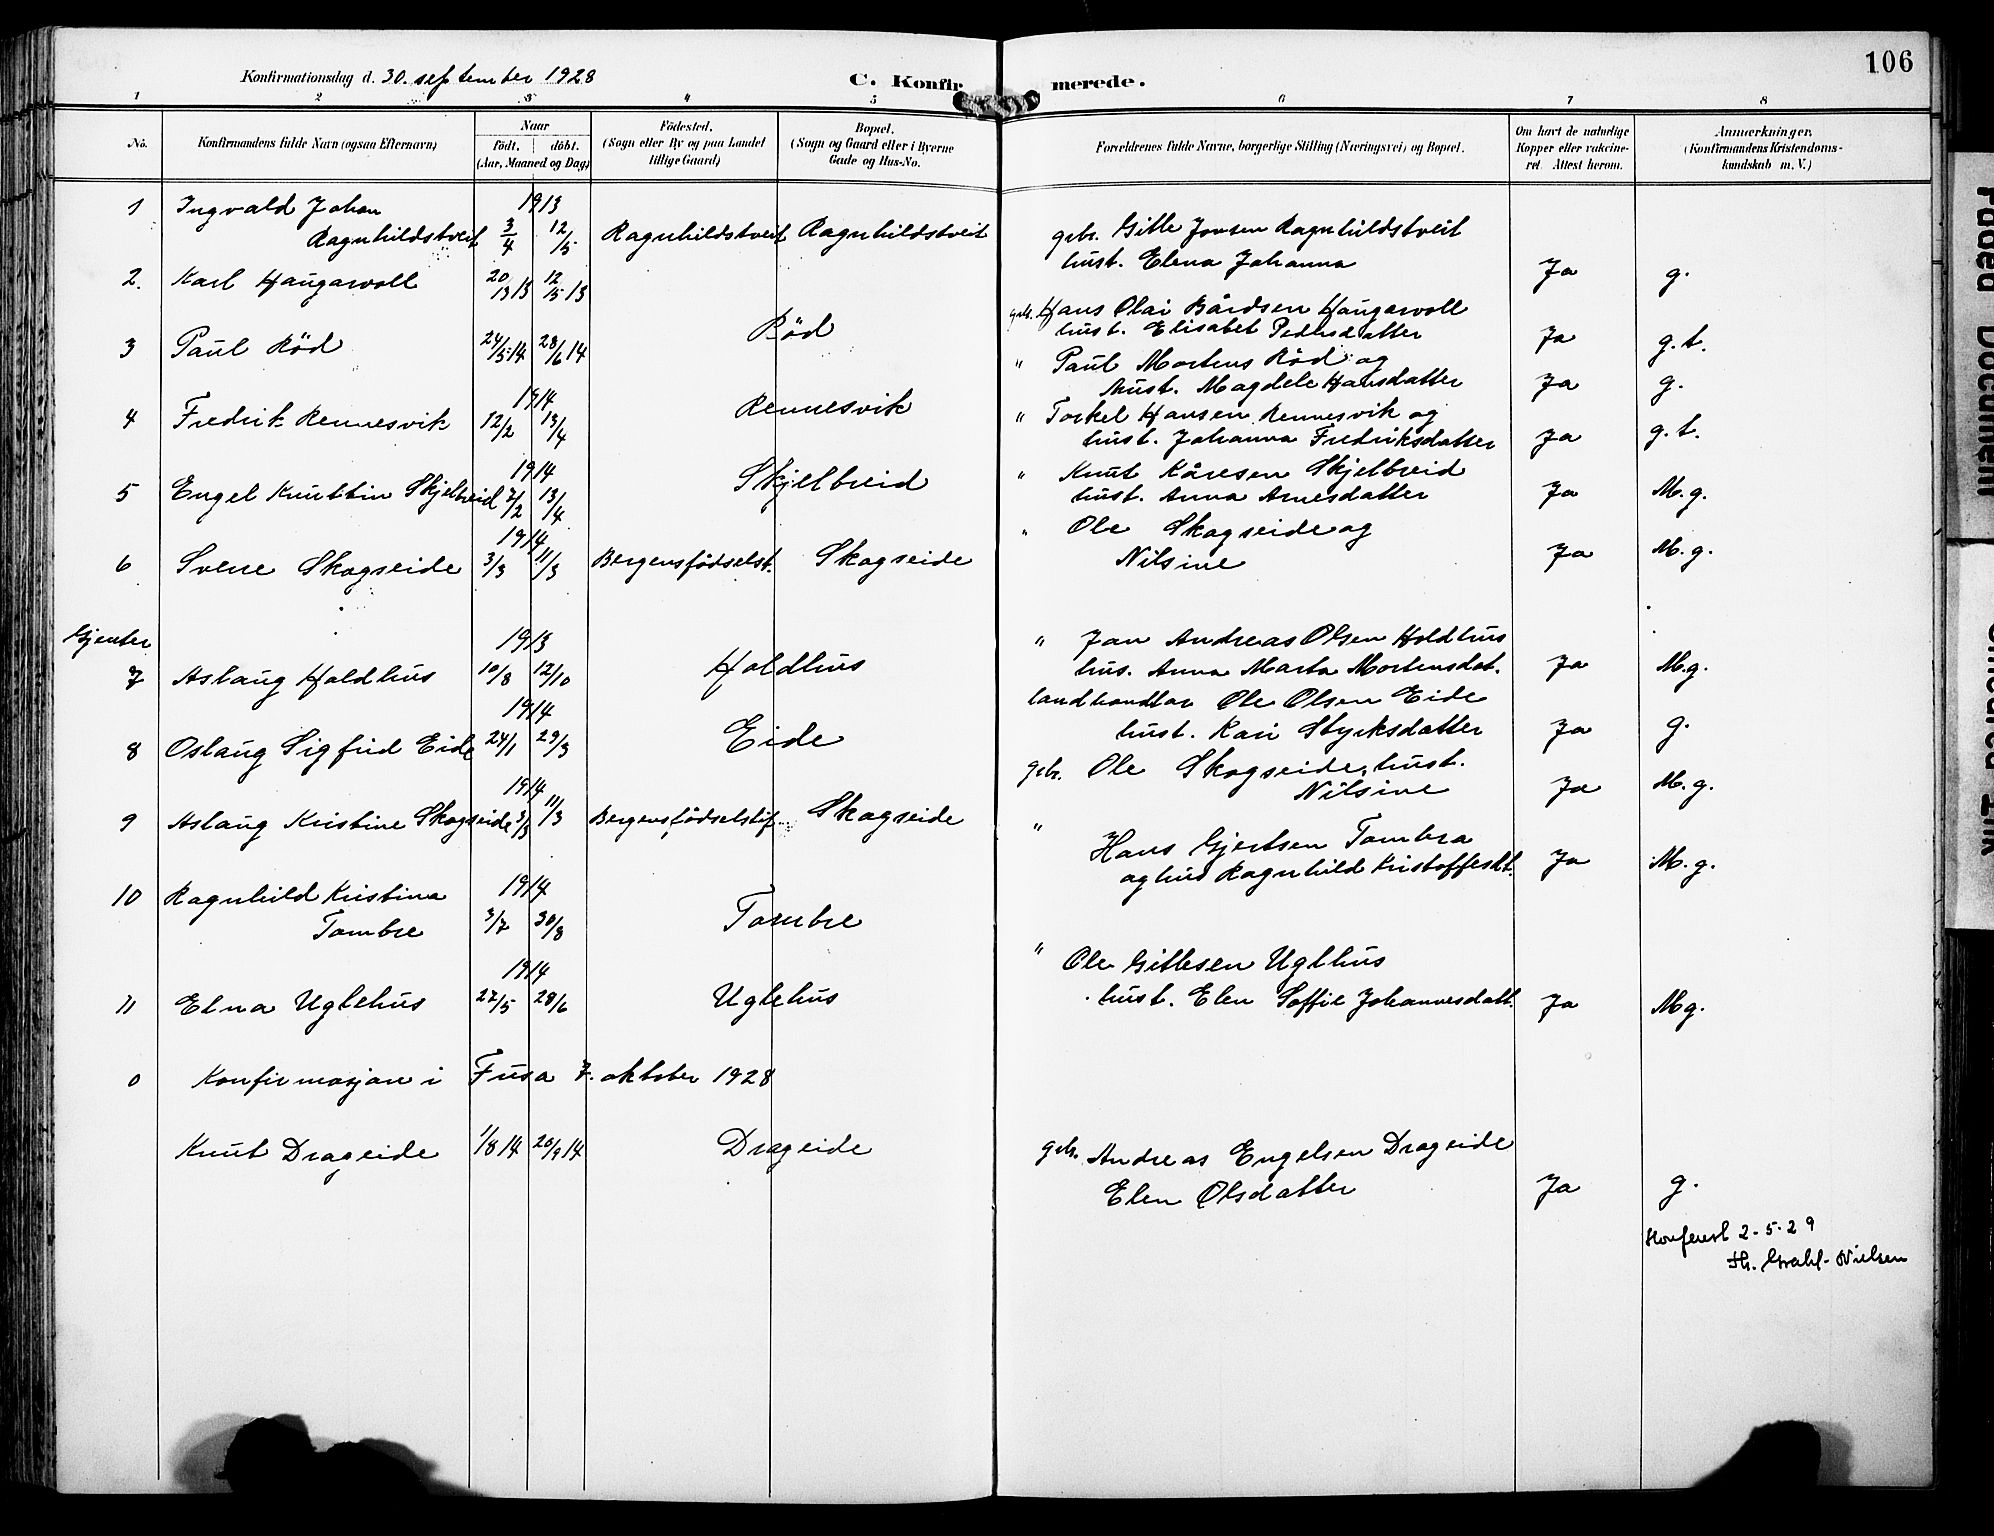 106
Konfirmationsdag d. 30. september 1928 C. Konfir merede.
1 2 3 4 5 6 7 8
No.
Konfirmandens fulde Navn (ogsaa Efternavn)
Naar
født, døbt.
(Aar, Maaned og Dag)
Fødested.
(Sogn eller By og paa Landet
tillige Gaard)
Bopæl.
(Sogn og Gaard eller i Byerne
Gade og Hus-No.
Forældrenes fulde Navne, borgerlige Stilling (Næringsvei) og Bopæl.
Om havt de naturlige
Kopper eller vakcine-
ret. Attest herom.
Anmærkninger.
(Konfirmandens Kristendoms-
kundskab m. V.)
1 Ingvald Johan 1913
Ragnhildstveit 3/4 12/5 Ragnhildstveit Ragnhildstveit gbr. Gitle Jonsen Ragnhildstveit
hust. Elena Johanna Ja g.
2. Karl Haugarvoll 12/5 13
gbr. Hans Olai Bårdsen Haugarvoll
hust. Elisabet Pedersdatter Ja g.t.
3 Paul Rød 24/5 14 28/6 14 Rød
" Paul Mortens Rød og
hust. Magdele Hansdatter Ja g.
4 Fredrik Rennesvik 1914 12/2 13/4 Rennesvik
" Torkel Hansen Rennesvik og
hust. Johanna Fredriksdatter Ja g.t.
5 Engel Knuttin Skjelbreid 1914 7/2 13/4 Skjelbreid
" Knut Kåresen Skjelbreid
hust. Anna Arnesdatter Ja M.g.
6 Sverre Skogseide 1914 3/3 11/3 Bergensfødselst. Skogseide
" Ole Skogseide og
Nilsine Ja M.g.
Gjenter
7 Aslaug Holdhus 1913 10/8 12/10 Holdhus
" Jan Andreas Olsen Holdhus
hus. Anna Marta Mortensdat. Ja M.g.
8 Oslaug Sigfrid Eide 1914 24/1 29/3 Eide
landhandlar Ole Olsen Eide
hust. Kari Styrksdatter Ja g.
9 Aslaug Kristine Skogseide 1914 3/3 11/3 Bergensfødselstif. Skogseide
gbr. Ole Skogseide, hust.
Nilsine Ja M.g.
10 Ragnhild Kristina 1914
Tombre 3/7 30/8 Tombre
" Hans Gjertsen Tombra
og hus Ragnhild Kristoffersdt. Ja M.g.
11 Elna Uglehus 1914 27/5 28/6 Uglehus
" Ole Gitlesen Uglhus
hust. Elen Soffie Johannesdatt. Ja Mg.
0 Konfirmasjon i Fusa 7. oktober 1928
Knut Drageide 1/8 14 20/9 14 Drageide
gbr. Andreas Engelsen Drageide
Elen Olsdatter Ja g.
Konferert 2-5-29
Th. Grahl-Nielsen